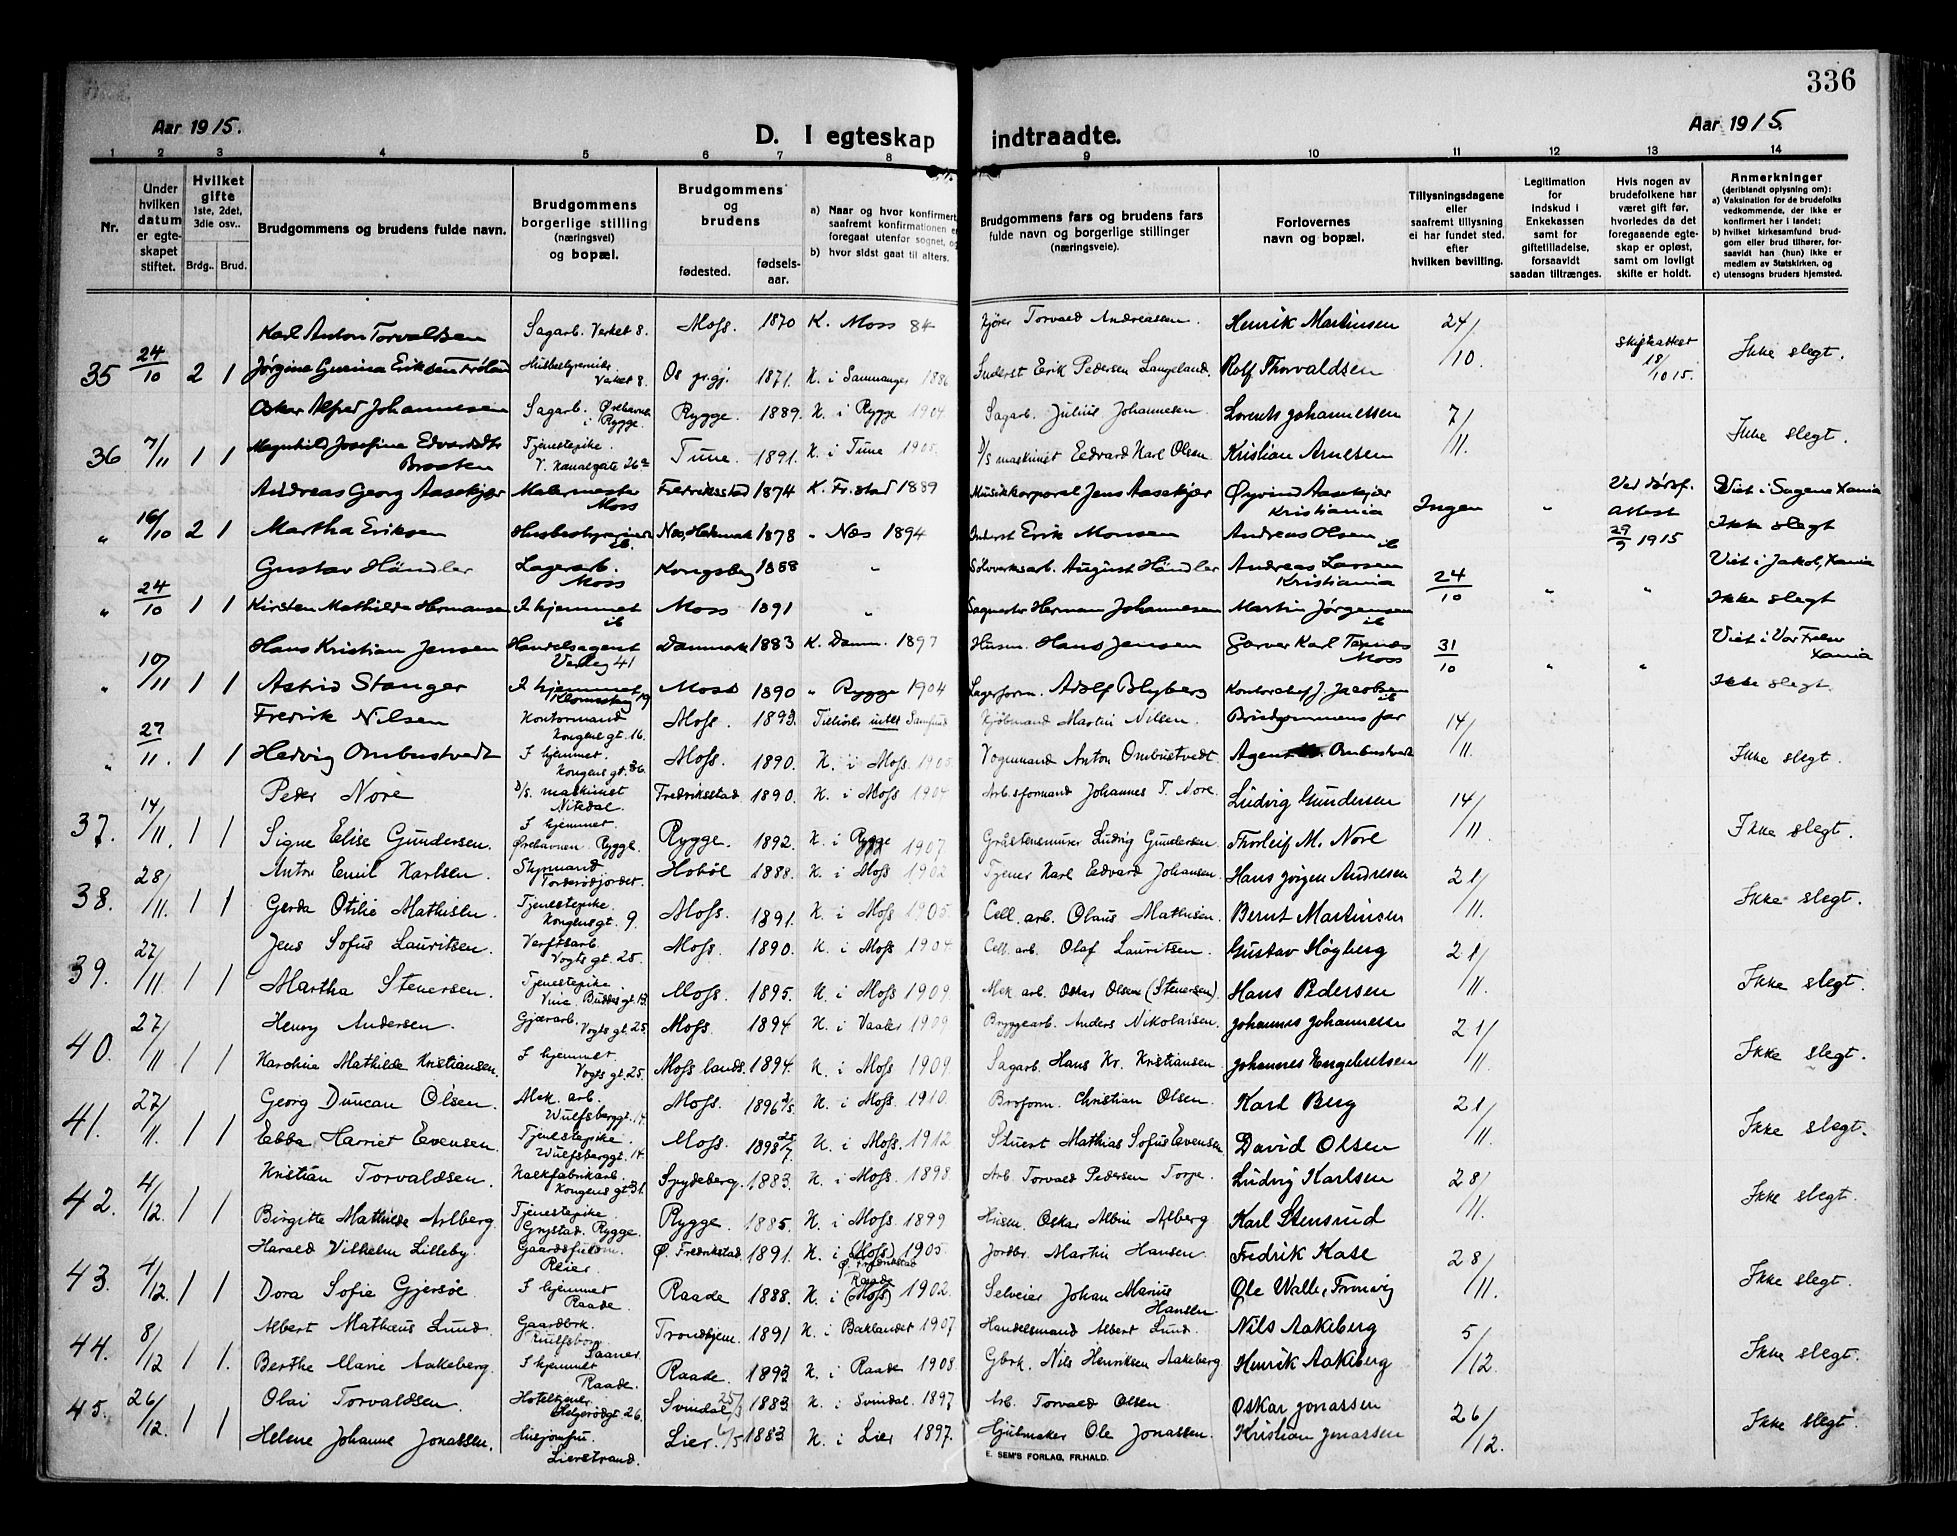 336
Aar 1915.
D. I egteskap indtraadte.
Aar 1915.
1 2 3 4 5 6 7 8 9 10 11 12 13 14
Nr.
Under hvilken datum er egteskapet stiftet.
Hvilket gifte 1ste, 2det, 3die osv..
Brdg.. Brud.
Brudgommens og brudens fulde navn.
Brudgommens borgerlige stilling (næringsvei) og bopæl.
Brudgommens og brudens
fødested. fødselsaar.
a) Naar og hvor konfirmert, saafremt konfirmationen er foregaat utenfor sognet, og
b) hvor sidst gaat til alters.
Brudgommens fars og brudens fars fulde navn og borgerlige stillinger (næringsveie).
Forlovernes navn og bopæl.
Tillysningsdagene eller saafremt tillysning ei har fundet sted, efter hvilken bevilling.
Legitimation for indskud i Enkekassen samt for giftetilladelse, forsaavidt saadan tiltrænges.
Hvis nogen av brudefolkene har været gift før, hvorledes da det foregaaende egteskap er opløst, samt om lovligt skifte er holdt.
Anmerkninger (deriblandt oplysning om):
a) Vaksination for de brudefolks vedkommende, der ikke er konfirmert her i landet;
b) hvilket kirkesamfund brudgom eller brud tilhører, forsaavidt han (hun) ikke er medlem av Statskirken, og
c) utensogns bruders hjemsted.
Karl Anton Torvaldsen Sagarb. Verket 8. Moss. 1870 K. Moss 84 Kjører Torvald Andreassen. Henrik Martinsen 24/10
35 24/10 2 1 Jørgine Gurina Eriksen Frøland Husbestyrerinde Verket 8. Os pr.gj. 1871. K. i Samnanger 1886 Inderst Erik Pedersen Langeland. Rolf Thorvaldsen Skifteattest 18/10 15. Ikke slegt.
Oskar Alfred Johannesen Sagarb. Ørehavn i Rygge. Rygge. 1889. K. i Rygge 1904. Sagarb. Julius Johannesen Lorents Johannessen 7/11.
36 7/11 1 1 Magnhild Josefine Edvardsdtr Braaten Tjenestepike. V. Kanalgate 26a Tune. 1891. K. i Tune 1905. D/S maskinist Edvard Karl Olsen. Kristian Arnesen Ikke slegt.
Andreas Georg Aasekjær Malermester Moss Fredriksstad 1874 K. Fr.stad 1889 Musikkorporal Jens Aasekjær Øyvind Aasekjær Kristiania Ingen " Ved dødsf. Viet i Sagene Kania
" 16/10 2 1 Martha Eriksen Husbestyrerinde ib. Nes, Hedemark 1878 " Næs 1894 Inderst Erik Monsen Andreas Olsen ib Attest 29/9 1915 Ikke slegt
Gustav Händler Lagerarb. Moss Kongsberg 1888 " Sølvverksarb. August Händler Andreas Larsen Kristiania 24/10 " " Viet i Jakob, Kania
" 24/10 1 1 Kirsten Mathilde Hermansen I hjemmet ib Moss 1891 " Sagmester Herman Johannesen Martin Jørgensen ib Ikke slegt
Hans Kristian Jensen Handelsagent Varleg 41 Danmark 1883 K. Danm. 1897 Husm. Hans Jensen Garver Karl Taxnæs Moss 31/10 " " Viet i Vor Frelser Kania
" 10/11 1 1 Astrid Stanger I hjemmet Moss 1890 " Rygge 1904 Lagerform. Adolf Blyberg Kontorchef J. Jacobsen ib Ikke slegt.
Fredrik Nilsen Kontormand Kongens gt. 16. Moss. 1893. Tilhører intet Samfund Kjøbmand Martin Nilsen. Brudgommens far 14/11.
" 27/11. 1 1 Hedvig Ombustvedt I hjemmet. Kongens gt. 36. Moss. 1890. K. i Moss. 1905 Vognmand Anton Ombustvedt Agent Ombustvedt Ikke slegt.
Peder Nore D/s. maskinist Nitedal. Fredriksstad 1890. K. i Moss 1904 Arb.sformand Johannes T. Nore. Ludvig Gundersen 14/11
37. 14/11. 1 1 Signe Elise Gundersen. I hjemmet. Ørehavnen. Rygge. Rygge. 1892. K. i Rygge 1907. Gråstensmurer Ludvig Gundersen. Thorleif M. Nore Ikke slegt.
Anton Emil Karlsen. Styrmand Torderødjordet. Hobøl 1888. K. i Moss 1902 Tjener Karl Edvard Johansen. Hans Jørgen Andresen 21/11.
38. 28/11. 1 1 Gerda Otilie Mathisen. Tjenestepike. Kongens gt. 9. Moss. 1891. K. i Moss 1905. Cell. arb. Olaus Mathisen. Bernt Martinsen Ikke slegt.
Jens Sofus Lauritsen. Verftsarb. Vogts gt. 25. Moss. 1890. K. i Moss 1904 Cell. arb. Olaf Lauritsen. Gustav Høgberg 21/11.
39. 27/11. 1 1 Martha Stenersen. Tjenestepike. Moss. 1895. K. i Moss 1909. Mek arb. Oskar Olsen (Stenersen). Hans Pedersen Ikke slegt.
Henry Andersen. Gjærarb. Vogts gt. 25. Moss. 1894 K. i Vaaler 1909 Bryggearb. Anders Nikolaisen. Johannes Johannesse 21/11.
40. 27/11 1 1 Karoline Mathilde Kristiansen. I hjemmet Vogts gt. 25. Moss lands. 1894. K. i Moss 1909. Sagarb. Hans Kr. Kristiansen. Johannes Engebretsen Ikke slegt.
Georg Duncan Olsen. Mek. arb. Wulfsberggt. 14. Moss. 1896 2/5. K. i Moss. 1910. Broform. Christian Olsen. Karl Berg 21/11.
41. 27/11. 1 1 Ebba Harriet Evensen. Tjenestepike. Wulfsberggt. 14. Moss. 1898 25/7. K. i Moss. 1912 Stuert Mathias Sofus Evensen David Olsen Ikke slegt.
Kristian Torvaldsen. Kalkfabrikarb. Kongens gt. 31. Spydeberg. 1883. K. i Moss. 1898. Arb. Torvald Pedersen Torpe. Ludvig Karlsen 28/11.
42. 4/12. 1 1 Birgitte Mathilde Arlberg. Tjenestepike. Grystad. Rygge. Rygge. 1885. K. i Moss. 1899 Husm. Oskar Albin Alberg Karl Stensrud Ikke slegt.
Harald Vilhelm Lilleby. Reier. Ø. Fredrikstad. 1891. K. i (Moss) 1905 Ø. Fredrikstad Jordbr. Martin Hansen. Fredrik Kase 28/11.
43. 4/12. 1 1 Dora Sofie Gjersøe. I hjemmet Raade. Raade 1888. K. i Raade (Moss) 1902. Selveier Johan Marius Hansen Ole Walle, Tronvig Ikke slegt.
Albert Mathæus Lund. Gaardbrk. Saaner. Trondhjem. 1891 K. i Baklandet 1907 Handelsmand Albert Lund. Nils Aakeberg 5/12.
44. 8/12 1 1. Berthe Marie Aakeberg. I hjemmet Raade. Raade. 1893 K. i Raade 1908. Gbrk. Nils Henriksen Aakeberg Henrik Aakeberg Ikke slegt.
Olai Torvaldsen. Hoteltjener Helgerødgt 26. Svindal 25/3 1883. K. i Svindal. 1897 Arb. Torvald Olsen. Oskar Jonassen 26/12.
45. 26/12. 1 1 Helene Johanne Jonassen. Husjomfru. Lierstrand. Lier. 6/5 1883 K. i Lier 1897. Hjulmaker Ole Jonassen. Kristian Jonassen Ikke slegt.
E. SEM'S FORLAG, FR.HALD.